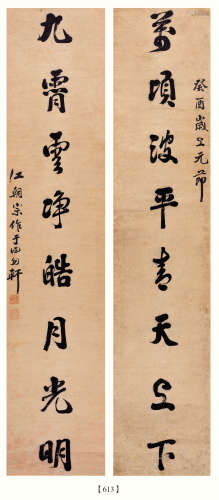 癸酉歲上元節
萬頃波平青天上下
九霄雲净皓月光明
江朝宗作于
軒
【613】